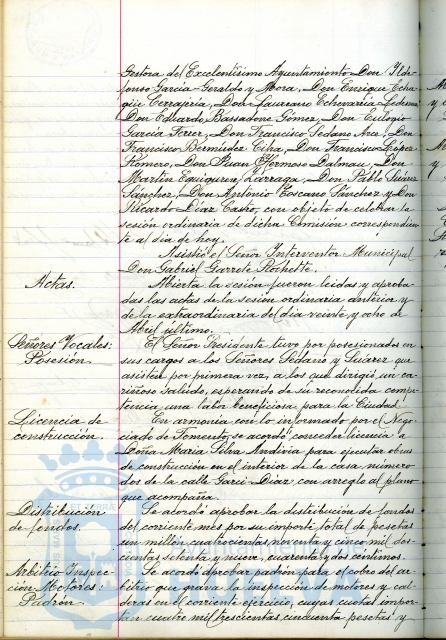 Gestora del Excelentísimo Ayuntamiento Don Ilde-
fonso García-Geraldo y Mora, Don Enrique Echa-
güe Cerrajería, Don Laureano Echevarría Ledesma,
Don Eduardo Bassadone Gómez, Don Eulogio
García Ferrer, Don Francisco Sedano Arce, Don
Francisco Bermúdez Ciha, Don Francisco López
Romero, Don Juan Hermoso Dalmau, Don
Martín Equiguren Lárraga, Don Pablo Suárez
Sánchez, Don Antonio Toscano Sánchez y Don
Ricardo Díaz Castro, con objeto de celebrar la
sesión ordinaria de dicha Comisión correspondien-
te al día de hoy.
Asistió el Señor Interventor Municipal
Don Gabriel Garrote Rochette.
Actas.
Abierta la sesión fueron leidas y aproba-
das las actas de la sesión ordinaria anterior y
de la extraordinaria del día veinte y ocho de
Abril último.
Señores Vocales:
Posesión.
El Señor Presidente tuvo por posesionados en
sus cargos a los Señores Sedano y Suárez que
asisten por primera vez, a los que dirigió un ca-
riñoso saludo, esperando de su reconocida compe-
tencia una labor beneficiosa para la Ciudad.
Licencia de
construcción.
En armonía con lo informado por el Nego-
ciado de Fomento, se acordó conceder licencia a
Doña María Silva para ejecutar obras
de construcción en el interior de la casa número
dos de la calle Garci-Díaz, con arreglo al plano
que acompaña.
Distribución
de fondos.
Se acordó aprobar la distribución de fondos
del corriente mes por su importe total de pesetas
un millón cuatrocientas noventa y cinco mil dos-
cientas setenta y nueve, cuarenta y dos céntimos.
Arbitrio Inspec-
ción Motores:
Padrón.
Se acordó aprobar padrón para el cobro del ar-
bitrio que grava la inspección de motores y cal-
deras en el corriente ejercicio, cuyas cuotas impor-
tan cuatro mil trescientas cincuenta pesetas y